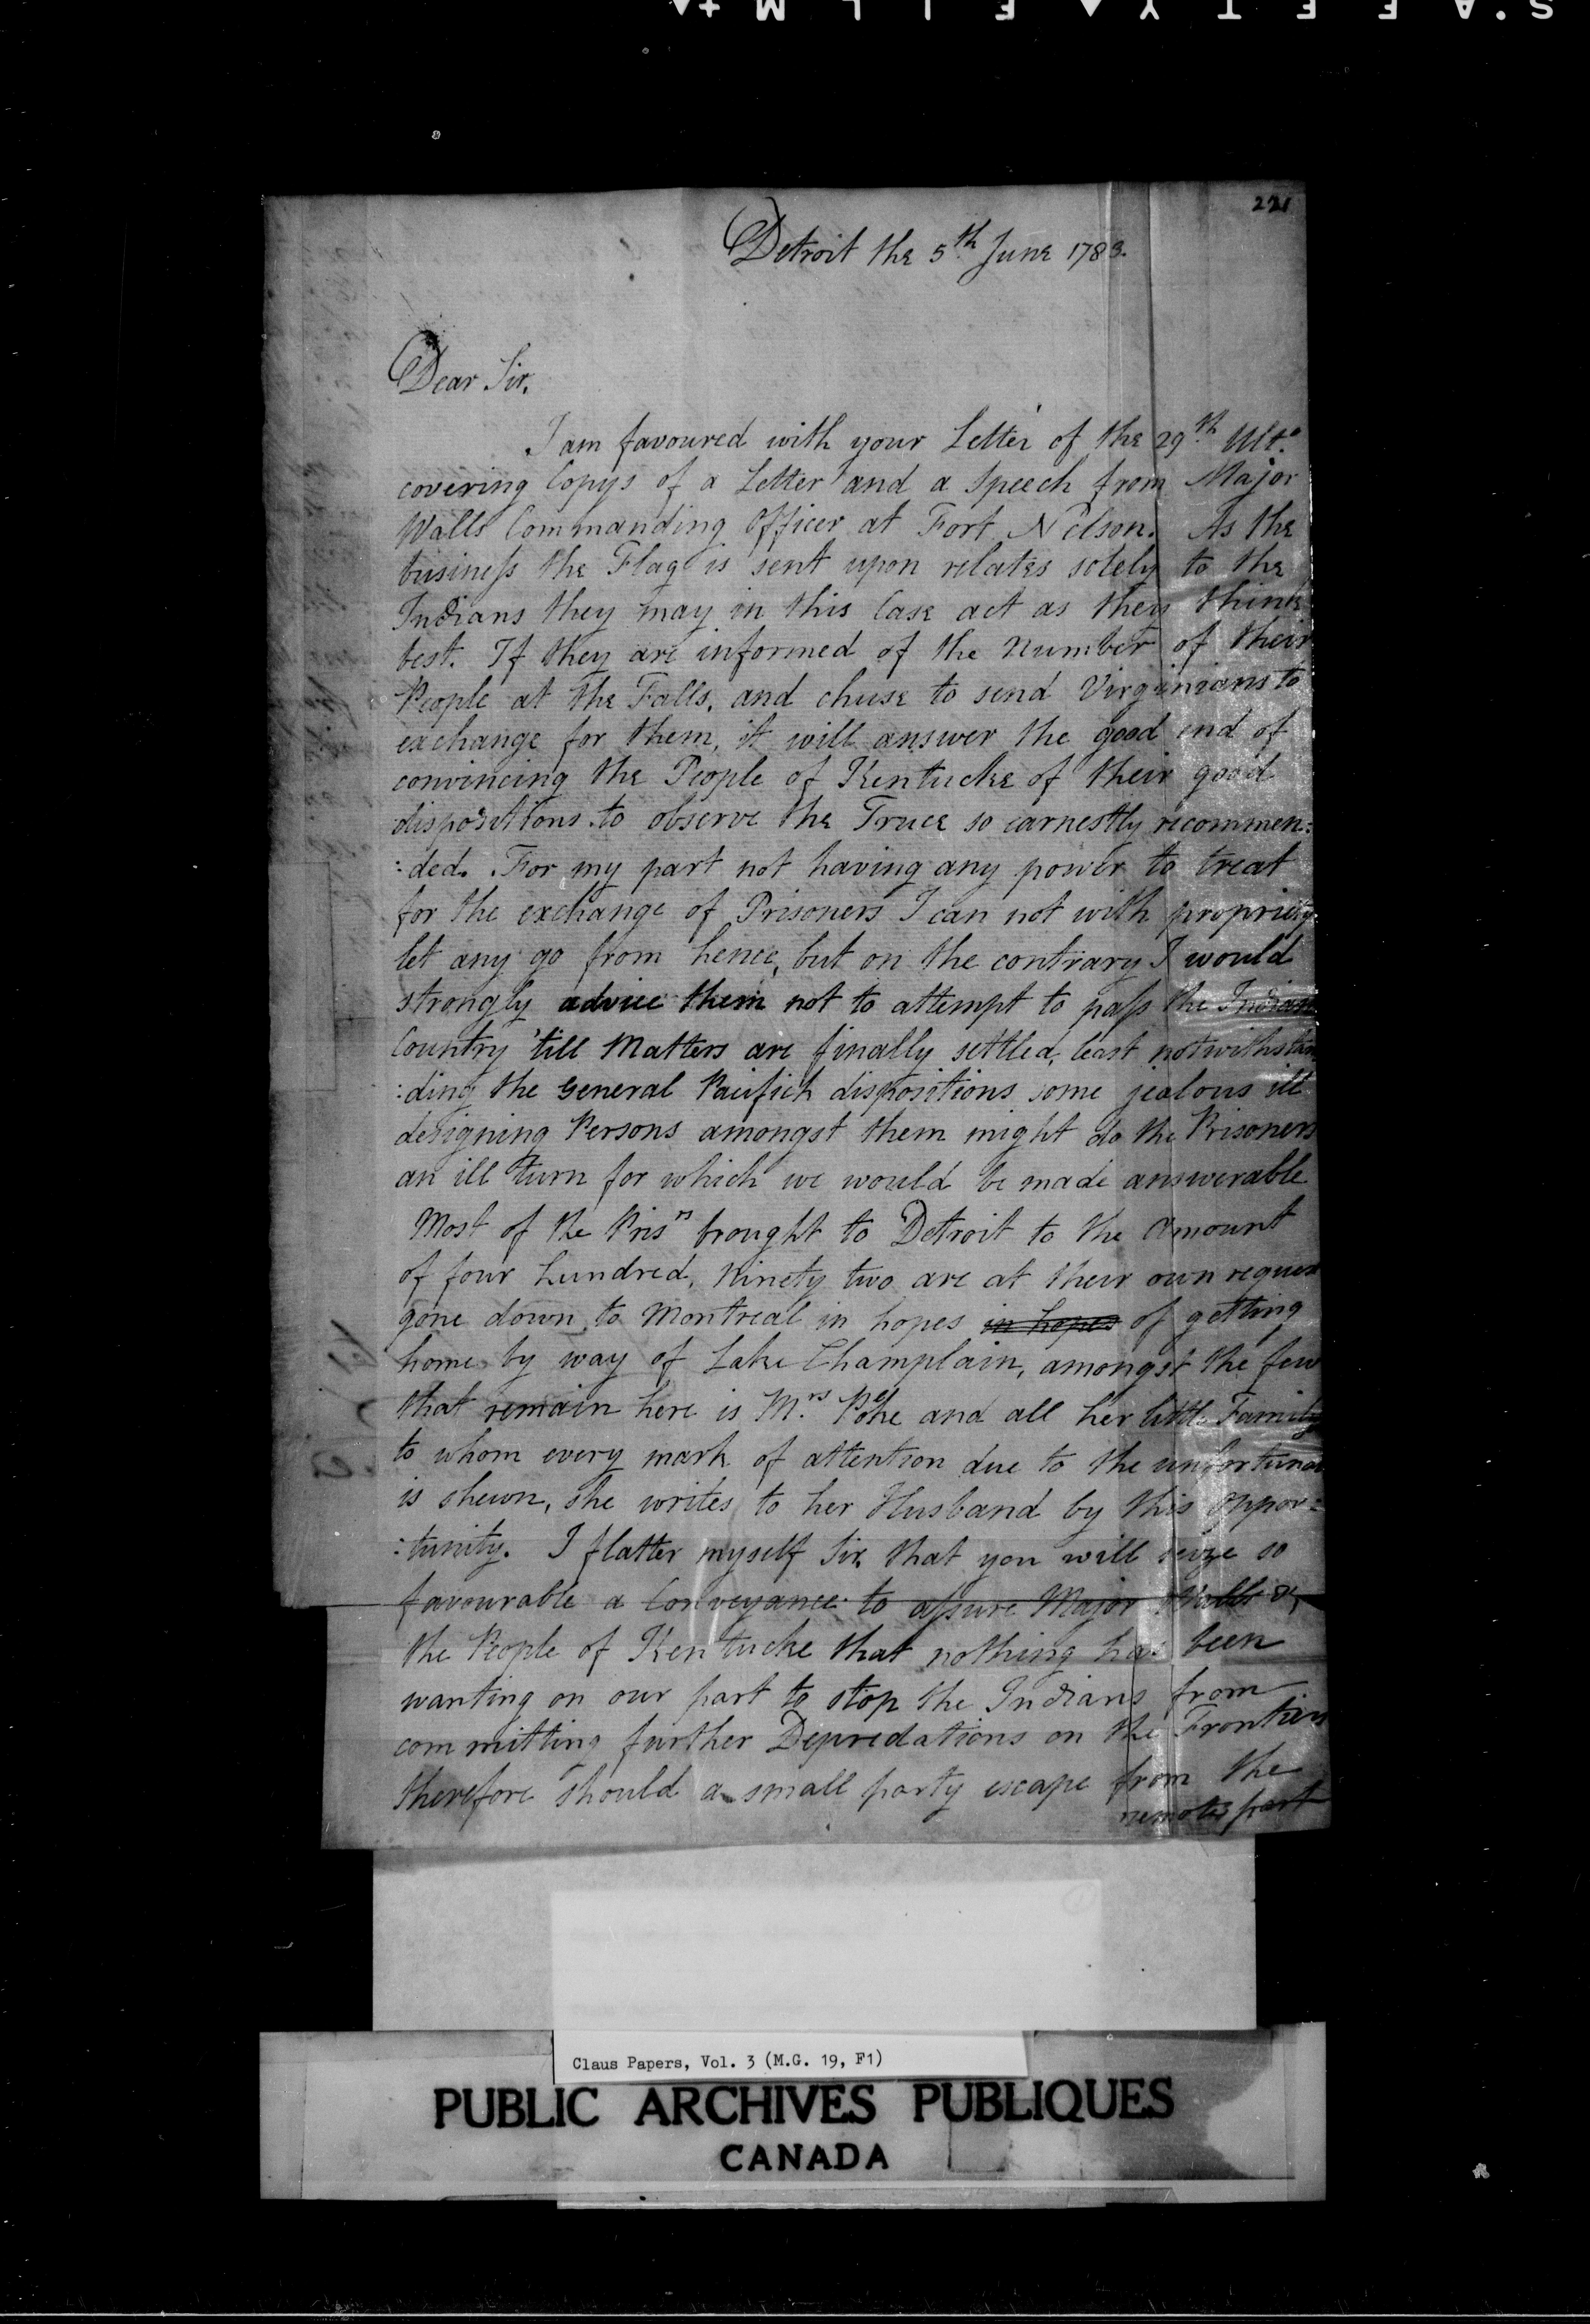 221
Detroit the 5th June 1783.
Dear Sir,
I am favoured with your Letter of the 29th Ulto
covering Copys of a Letter and a Speech from Major
Walls Commanding Officer at Fort Nelson. As the
business the Flag is sent upon relates solely to the
Indians they may in this Case act as they think
best. If they are informed of the number of their
People at the Falls, and chuse to send Virginians to
exchange for them, it will answer the good end of
convincing the People of Kentucke of their good
dispositions to observe the Truce so earnestly recommen:
:ded. For my part not having any power to treat
for the exchange of Prisoners I can not with propriety
let any go from hence, but on the contrary I would
strongly advice them not to attempt to pass the Indian
Country 'till Matters are finally settled, least notwithstan
:ding the General Pacifick dispositions some jealous ill
designing Persons amongst them might do the Prisoners
an ill turn for which we would be made answerable
Most of the Prisrs brought to Detroit to the Amount
of four hundred, Ninety two are at their own request
gone down to Montreal in hopes in hopes of getting
home by way of Lake Champlain, amongst the few
that remain here is Mrs and all her little Family
to whom every mark of attention due to the unfortunate
is shewn, she writes to her Husband by this oppor:
:tunity. I flatter myself Sir, that you will seize so
favourable a Conveyance to assure Major Walls &
the People of Kentucke that nothing has been
wanting on our part to stop the Indians from
committing further Depredations on the Frontiers
therefore should a small party escape from the
remotes part
Claus Papers, Vol. 3 (M.G. 19, F1)
PUBLIC ARCHIVES PUBLIQUES
CANADA
S.A F E T Y F I L M